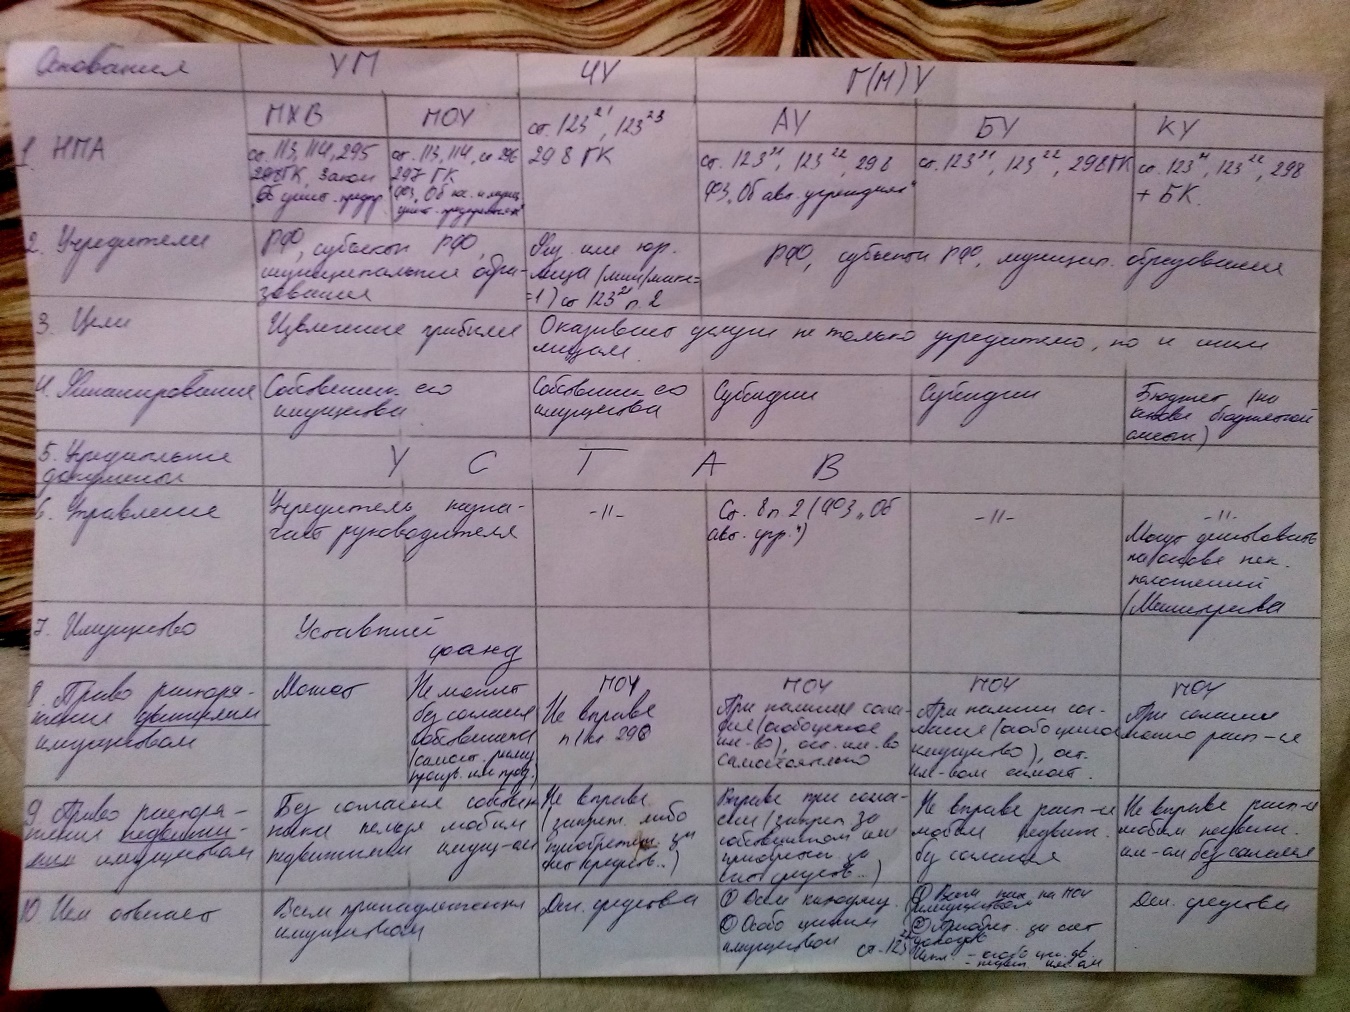 Основания
УП
ЧУ
Г(М)У
ПХВ
ПОУ
ст. 123²¹, 123²³
298 ГК
АУ
БУ
КУ
1. НПА
ст. 113, 114, 295
ГК, Закон
Об унит. предпр.
ст. 113, 114, ст 296
297 ГК
ФЗ „Об
унит. предприятиях"
ст. 123²¹, 123²², 298
ФЗ „Об авт. учреждениях"
ст. 123²¹, 123²², 298 ГК
ст. 123²¹, 123²², 298
+ БК.
2. Учредители
РФ, субъекты РФ,
муниципальные обра-
зования
Физ. или юр.
лица
=1) ст 123²¹ п. 2
РФ, субъекты РФ, муницип. образования
3. Цели
Извлечение прибыли
Оказывает услуги не только учредителю, но и иным
лицам.
4. Финансирование
Собственник его
имущества
Собственник его
имущества
Субсидии
Субсидии
Бюджет (на
основе бюджетной
сметы)
5. Учредительные
документы
У С Т А В
6. Управление
Учредитель назна-
чает руководителя
-//-
Ст. 8 п 2 (ФЗ „Об
авт. учр.")
-//-
-//-
Могут действовать
на основе
положений
7. Имущество
Уставный
фонд
8. Право распоря-
жения движимым
имуществом
Может
Не может
без согласия
собственника
(самост.
ПОУ
Не вправе
п 1 ст 298
ПОУ
При наличии согла-
сия (особо ценное
им-во), ост. им-во
самостоятельно
ПОУ
При наличии со-
гласия (особо ценное
имущество), ост.
им-вом самост.
ПОУ
При согласии
можно расп-ся
9. Право распоря-
жения недвижи-
мым имуществом
Без согласия собствен-
ника нельзя любым
недвижимым имущ-ом
Не вправе
(закреп. либо
приобретен. за
счет средств..)
Вправе при согла-
сии (закреп за
собственником или
приобретен за
счет средств..)
Не вправе расп-ся
любым недвиж.
без согласия
Не вправе расп-ся
любым недвиж.
им-ом без согласия
10. Чем отвечает
Всем принадлежащим
имуществом
Ден. средства
① Всем
② Особо ценным
имуществом
ст. 123²²
① Всем на ПОУ
имуществом
② Приобрет. за счет
доходов
Ден. средства